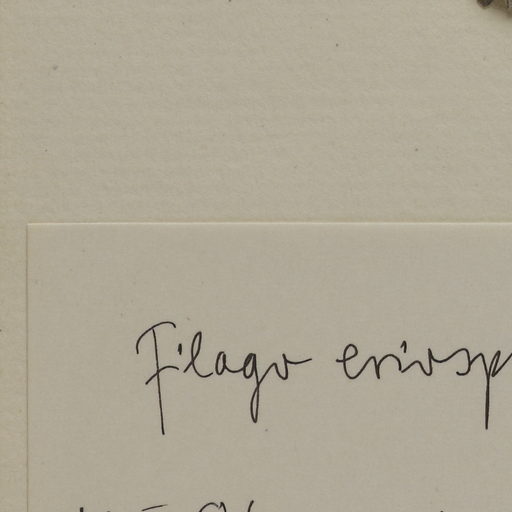 Filago eriosp